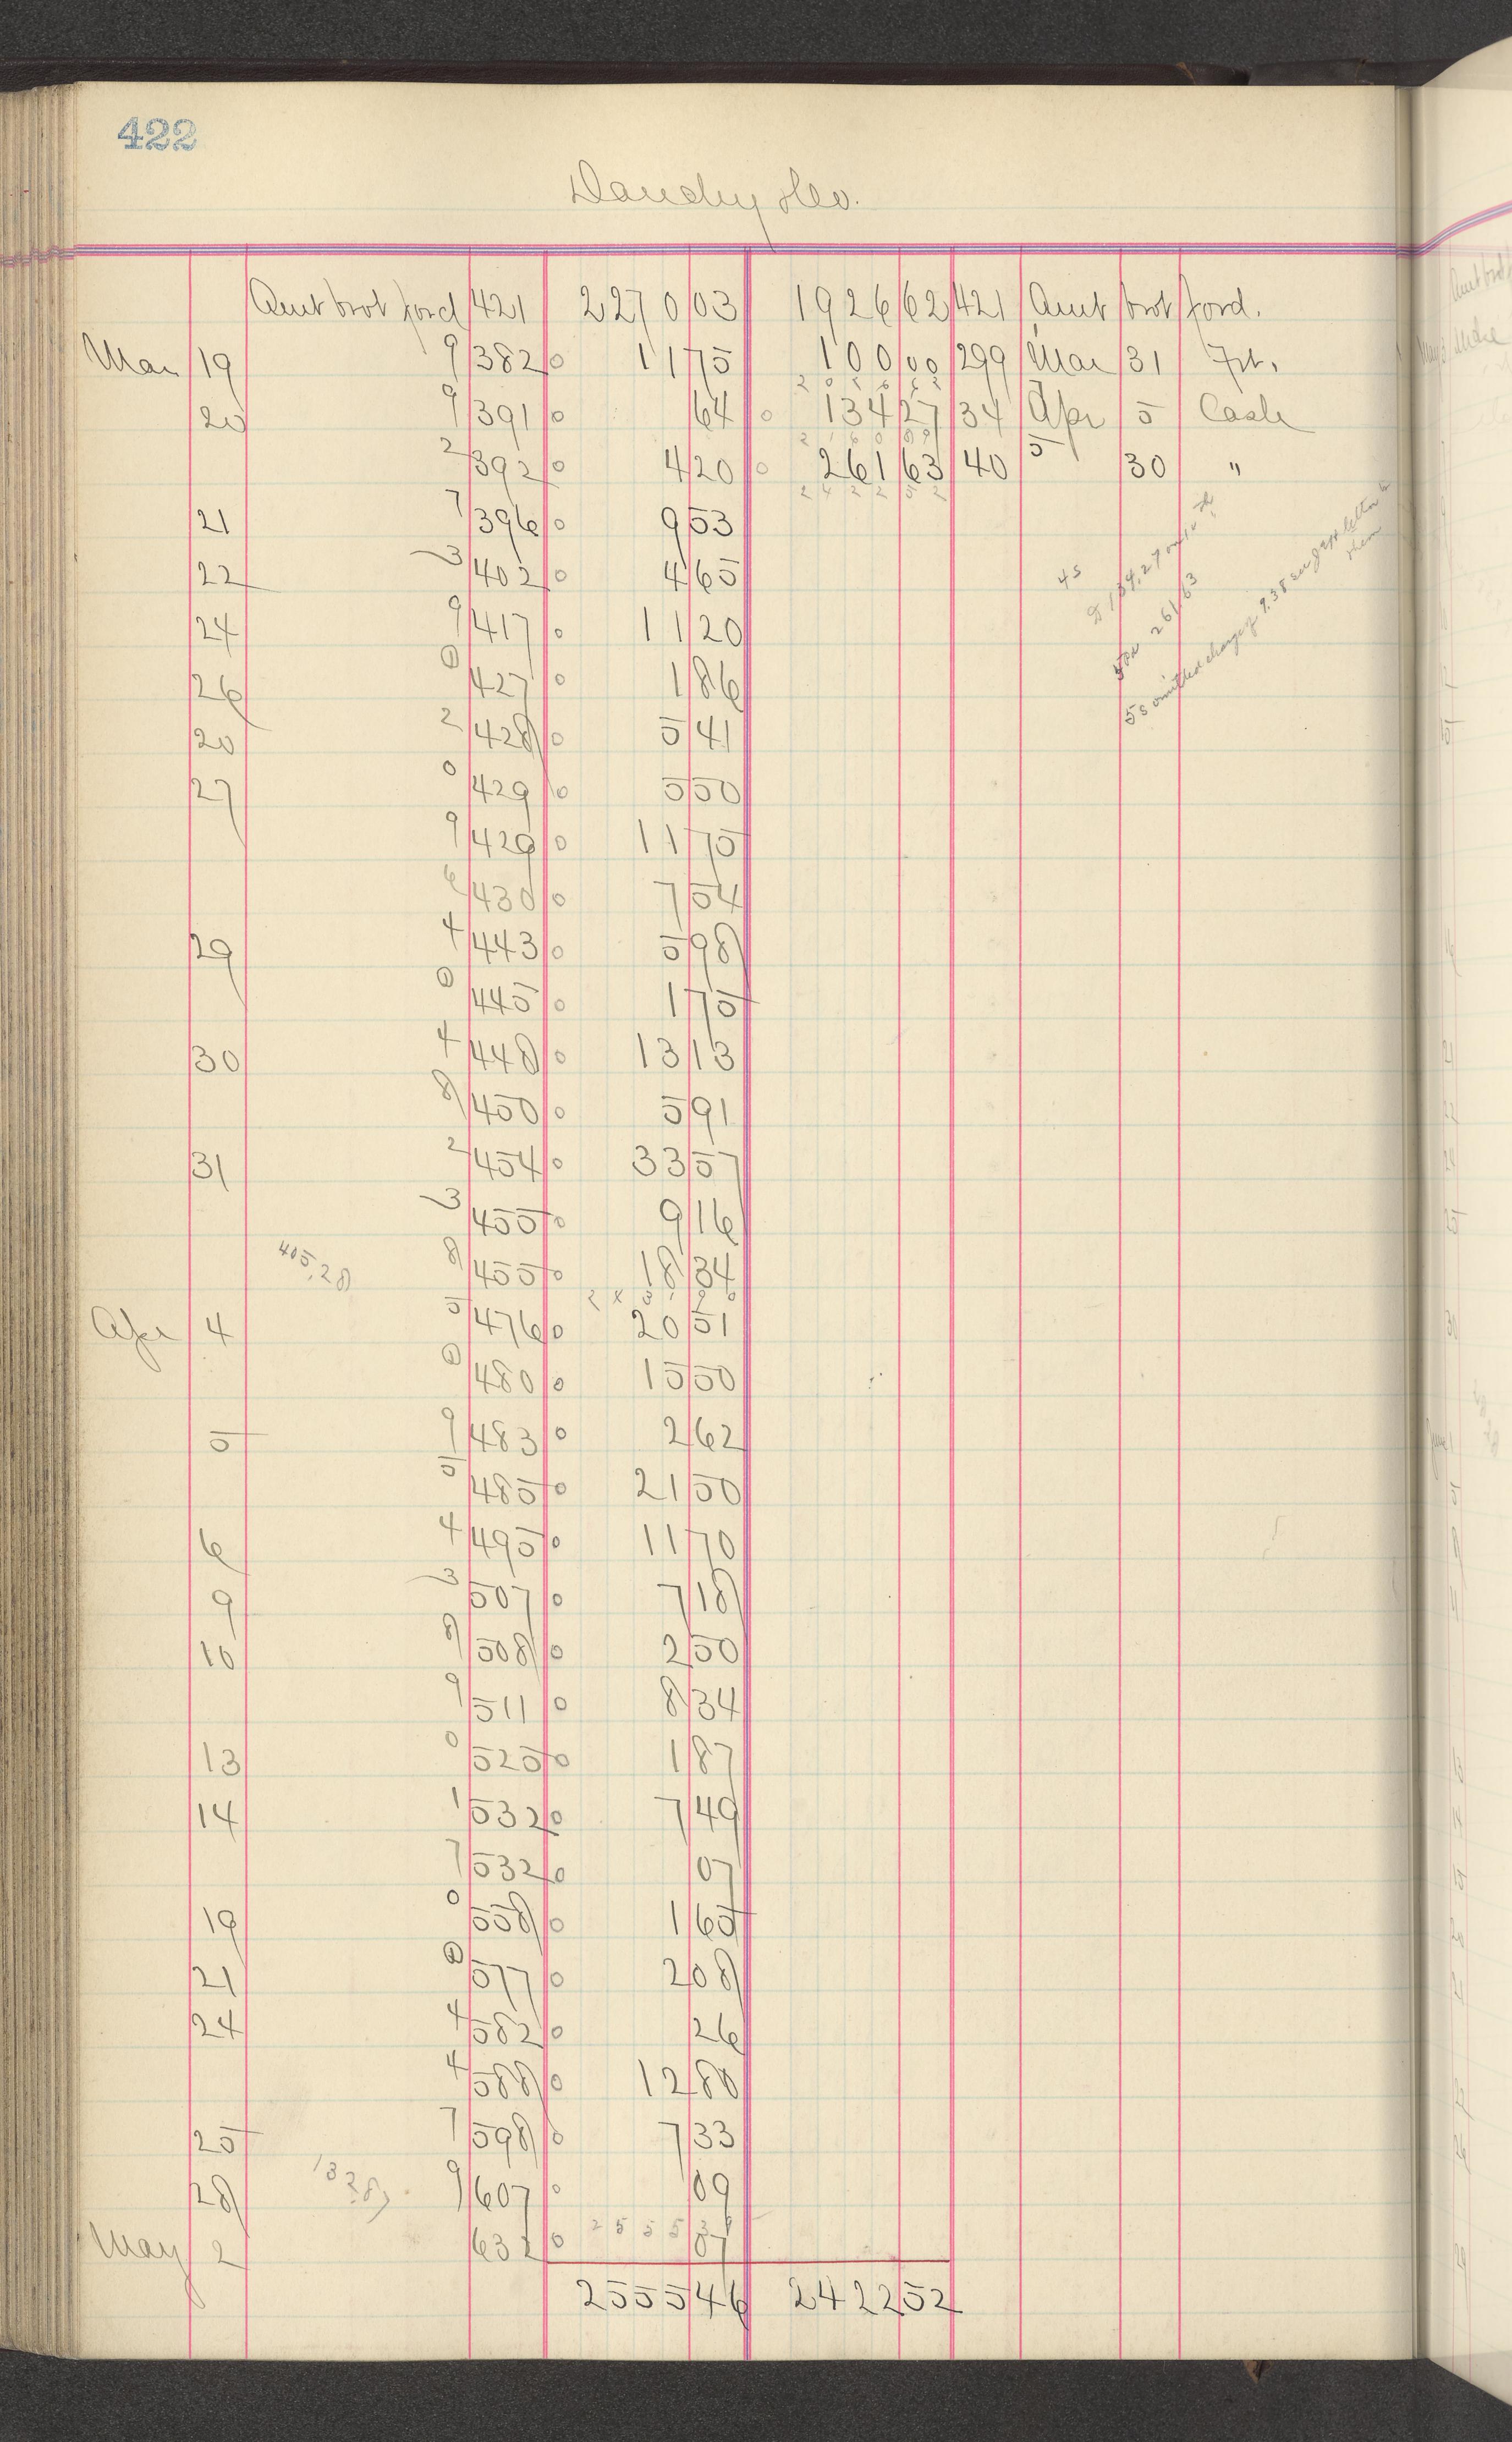 422
Dandy Geo.
Amt brot ford 421 2270 03 1926 62 421 Amt brot ford.
Mar 19 9 382 0 11 75 100 00 299 Mar 31 Frt.
20 9 391 0 64 0 134 27 34 Apr 5 Cash
2 392 0 4 20 0 261 63 40 5 30 "
21 7 396 0 9 53
22 3 402 0 4 65
24 9 417 0 11 20
26 427 0 1 86
20 2 428 0 5 41
27 0 429 0 5 50
9 429 0 11 75
6 430 0 7 54
29 4 443 0 5 98
445 0 1 75
30 4 448 0 13 13
8 450 0 5 91
31 2 454 0 33 57
3 455 0 9 16
405.28 8 455 0 18 34
Apr 4 5 476 0 20 51
480 0 15 50
5 9 483 0 2 62
5 485 0 21 50
6 4 495 0 11 70
9 3 507 0 7 18
10 8 508 0 2 50
9 511 0 8 34
13 0 525 0 1 87
14 1 532 0 7 49
7 532 0 07
19 0 558 0 1 65
21 577 0 2 08
24 4 582 0 26
4 588 0 12 80
25 7 598 0 7 33
28 9 607 0 09
May 2 632 0 07
2555 46 2422 52
4s
134.27 on 10th
261.63
5s omitted charge of 9.38 see letter